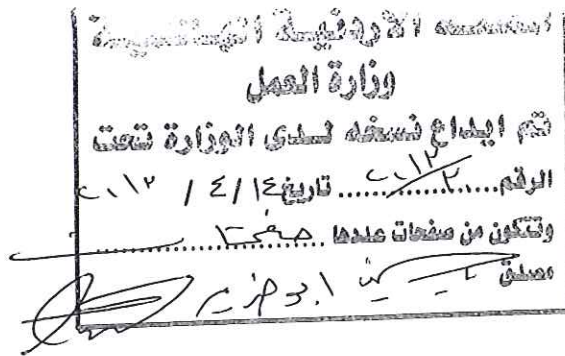 المملكة الأردنية الهاشمية
وزارة العمل
تم ايداع نسخه لدى الوزارة تحت
الرقم ٢/٢٠١٣ تاريخ ١٤/٤/٢٠١٣
وتتكون من صفحات عددها صفحتان
مصدق